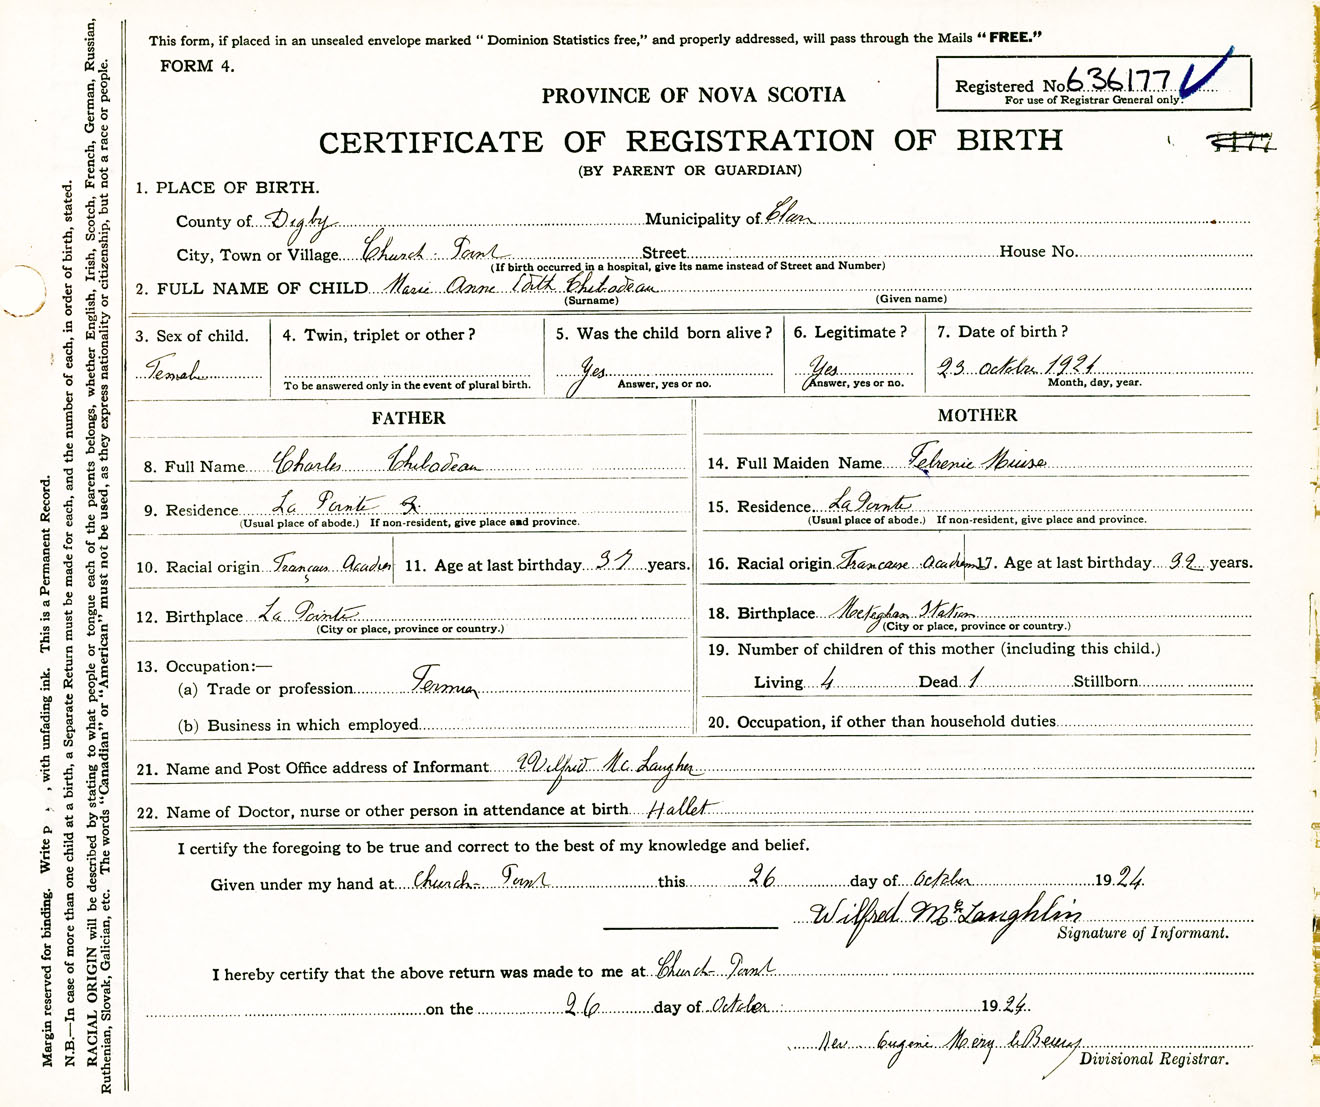 This form, if placed in an unsealed envelope marked " Dominion Statistics free," and properly addressed, will pass through the Mails " FREE."
FORM 4.
Registered No. 636177
For use of Registrar General only.
PROVINCE OF NOVA SCOTIA
CERTIFICATE OF REGISTRATION OF BIRTH
(BY PARENT OR GUARDIAN)
1. PLACE OF BIRTH.
County of Digby Municipality of Clare
City, Town or Village Church Point Street House No.
(If birth occurred in a hospital, give its name instead of Street and Number)
2. FULL NAME OF CHILD Marie Anne Edith Thibodeau
(Surname) (Given name)
3. Sex of child. 4. Twin, triplet or other ? 5. Was the child born alive ? 6. Legitimate ? 7. Date of birth ?
Female Yes Yes 23 octobre 1924
To be answered only in the event of plural birth. Answer, yes or no. Answer, yes or no. Month, day, year.
FATHER MOTHER
8. Full Name Charles Thibodeau 14. Full Maiden Name Muise
9. Residence La Pointe 15. Residence La Pointe
(Usual place of abode.) If non-resident, give place and province. (Usual place of abode.) If non-resident, give place and province.
10. Racial origin Francais Acadien 11. Age at last birthday 37 years. 16. Racial origin Francaise Acadienne 17. Age at last birthday 32 years.
12. Birthplace La Pointe 18. Birthplace Meteghan Station
(City or place, province or country.) (City or place, province or country.)
13. Occupation:— 19. Number of children of this mother (including this child.)
(a) Trade or profession Fermier Living 4 Dead 1 Stillborn
(b) Business in which employed 20. Occupation, if other than household duties
21. Name and Post Office address of Informant Wilfred Mc Laughlin
22. Name of Doctor, nurse or other person in attendance at birth Hallet
I certify the foregoing to be true and correct to the best of my knowledge and belief.
Given under my hand at Church Point this 26 day of october 1924.
Wilfred McLaughlin
Signature of Informant.
I hereby certify that the above return was made to me at Church Point
on the 26 day of October 1924.
Rev Eugene
Divisional Registrar.
Margin reserved for binding. Write p , with unfading ink. This is a Permanent Record.
N.B.—In case of more than one child at a birth, a Separate Return must be made for each, and the number of each, in order of birth, stated.
RACIAL ORIGIN will be described by stating to what people or tongue each of the parents belongs, whether English, Irish, Scotch, French, German, Russian,
Ruthenian, Slovak, Galician, etc. The words "Canadian" or "American" must not be used, as they express nationality or citizenship, but not a race or people.